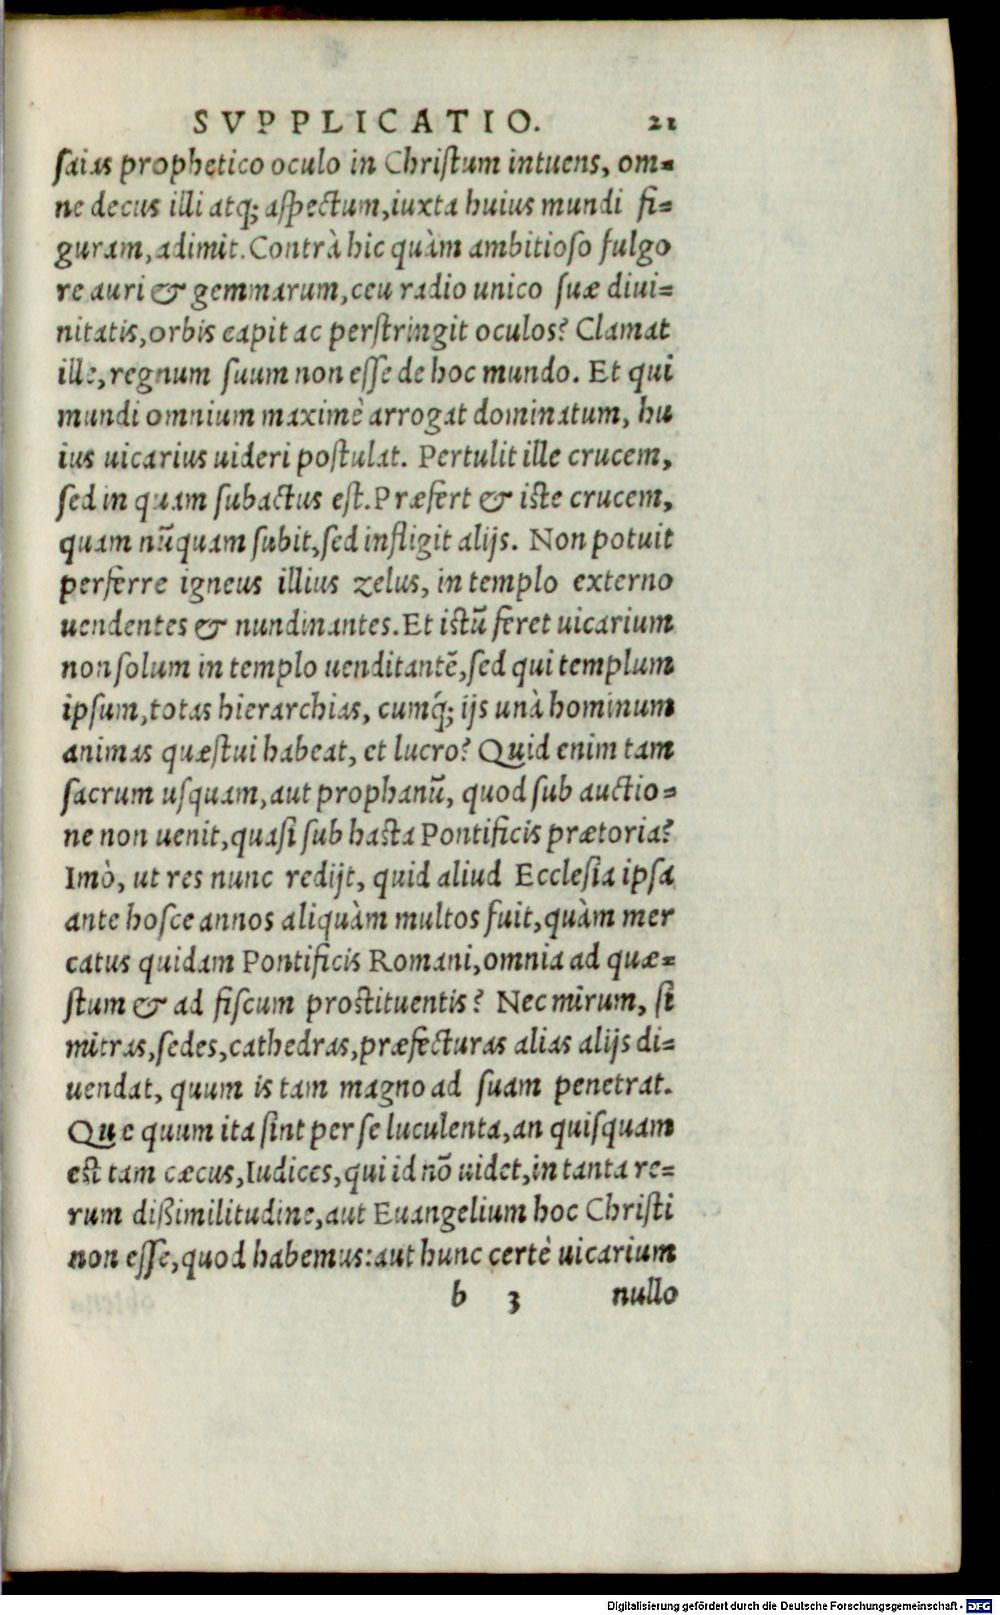 SVPPLICATIO. 21
saias prophetico oculo in Christum intuens, om-
ne decus illi atq; aspectum, iuxta huius mundi fi-
guram, adimit. Contrà hic quàm ambitioso fulgo
re auri & gemmarum, ceu radio unico suæ diui-
nitatis, orbis capit ac perstringit oculos? Clamat
ille, regnum suum non esse de hoc mundo. Et qui
mundi omnium maximè arrogat dominatum, hu
ius uicarius uideri postulat. Pertulit ille crucem,
sed in quam subactus est. Præfert & iste crucem,
quam nũquam subit, sed infligit alijs. Non potuit
perferre igneus illius zelus, in templo externo
uendentes & nundinantes. Et istũ feret uicarium
non solum in templo uenditantẽ, sed qui templum
ipsum, totas hierarchias, cumq́; ijs unà hominum
animas quæstui habeat, et lucro? Quid enim tam
sacrum usquam, aut prophanũ, quod sub auctio-
ne non uenit, quasi sub hasta Pontificis prætoria?
Imò, ut res nunc redijt, quid aliud Ecclesia ipsa
ante hosce annos aliquàm multos fuit, quàm mer
catus quidam Pontificis Romani, omnia ad quæ-
stum & ad fiscum prostituentis? Nec mirum, si
mitras, sedes, cathedras, præfecturas alias alijs di-
uendat, quum is tam magno ad suam penetrat.
Que quum ita sint per se luculenta, an quisquam
est tam cæcus, Iudices, qui id nõ uidet, in tanta re-
rum dißimilitudine, aut Euangelium hoc Christi
non esse, quod habemus: aut hunc certè uicarium
b 3 nullo
Digitalisierung gefördert durch die Deutsche Forschungsgemeinschaft - DFG